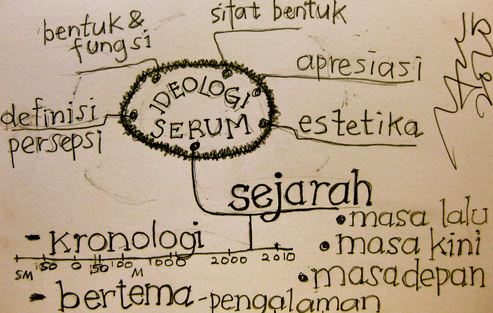 bentuk &
fungsi
sifat bentuk
apresiasi
definisi
persepsi
IDEOLOGI
SERUM
estetika
sejarah
• masa lalu
• masa kini
• masadepan
- kronologi
SM 50 0 50 100 M 1000 2000 2010
- bertema - pengalaman